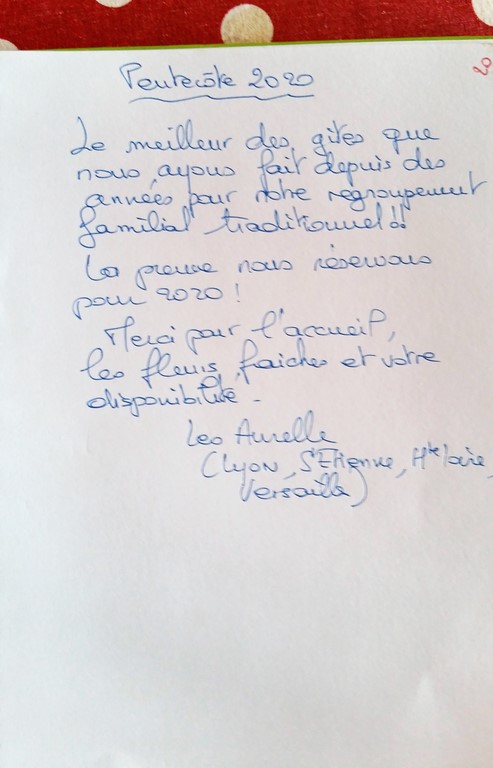 20
Pentecôte 2020
Le meilleur des gites que
nous ayons fait depuis des
années pour notre regroupement
familial traditionnel!!
La preuve nous réservons
pour 2020!
Merci pour l'accueil,
les fleurs fraiches et votre
disponibilité -
Les Aurelle
(Lyon, St Etienne, Hte loire,
Versaille)